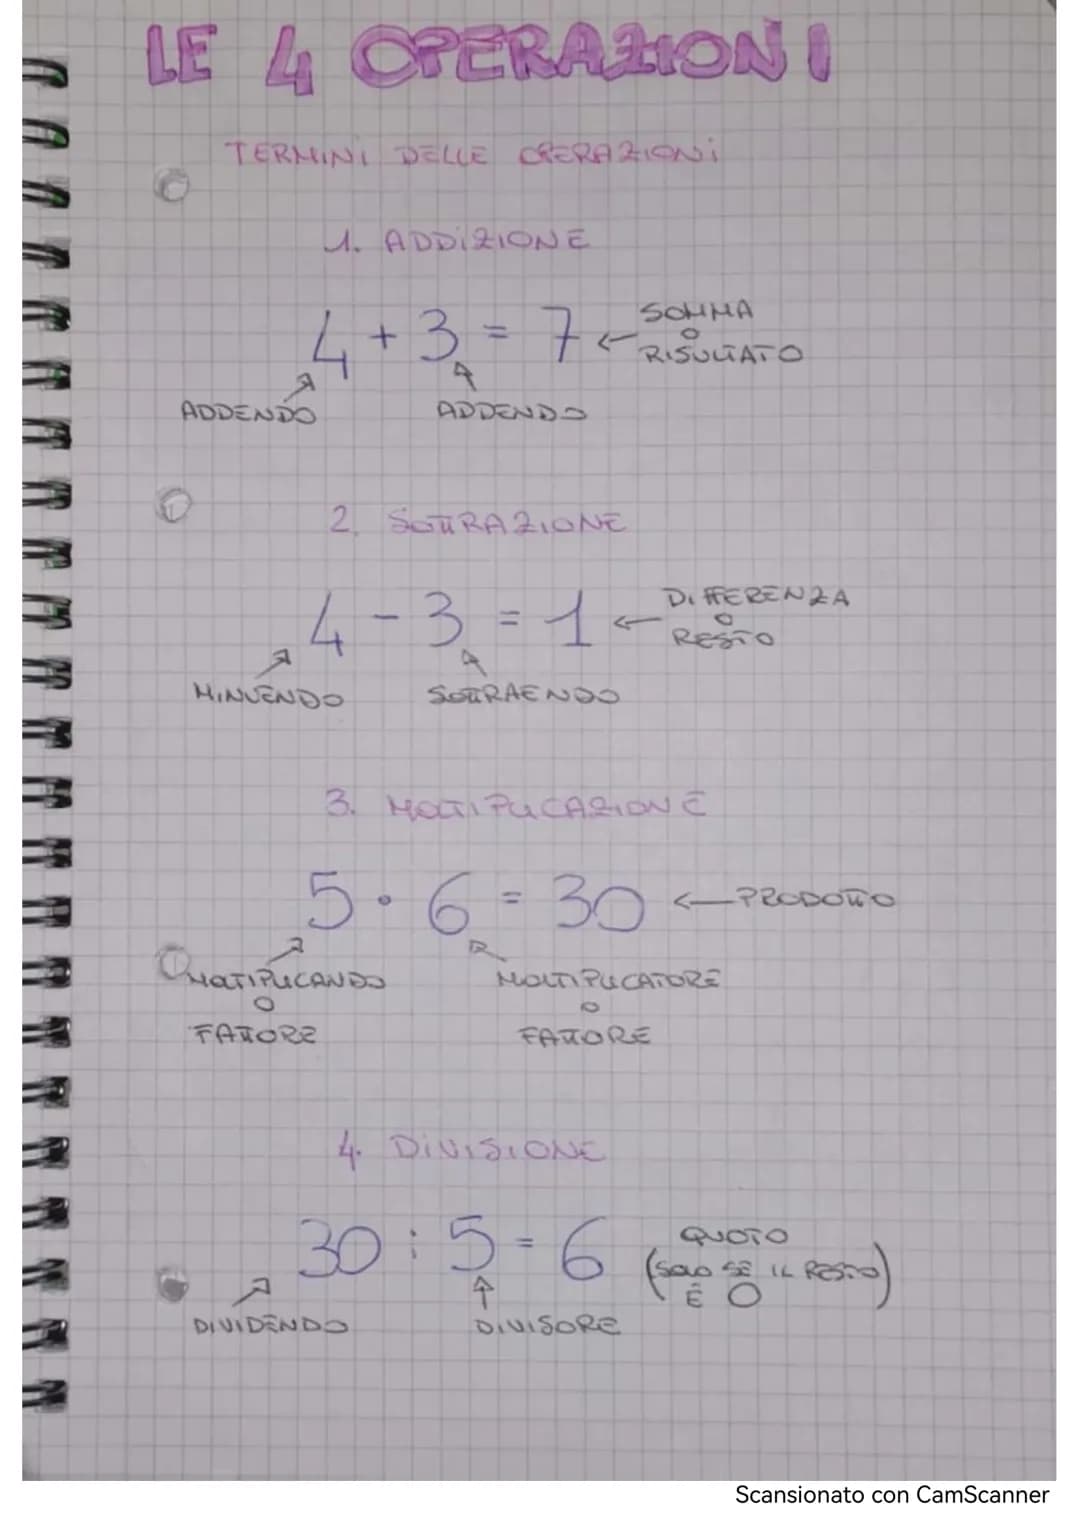 LE 4 OPERAZIONI
TERMINI DELLE OPERAZIONI
1. ADDIZIONE
4 + 3 = 7 ← SOMMA
O
RISULTATO
ADDENDO ADDENDO
2. SOTTRAZIONE
4 - 3 = 1 ← DIFFERENZA
O
RESTO
MINUENDO SOTTRAENDO
3. MOLTIPLICAZIONE
5 • 6 = 30 ← PRODOTTO
MOLTIPLICANDO MOLTIPLICATORE
O O
FATTORE FATTORE
4. DIVISIONE
30 : 5 = 6 QUOTO
(SOLO SE IL RESTO)
È 0
DIVIDENDO DIVISORE
Scansionato con CamScanner